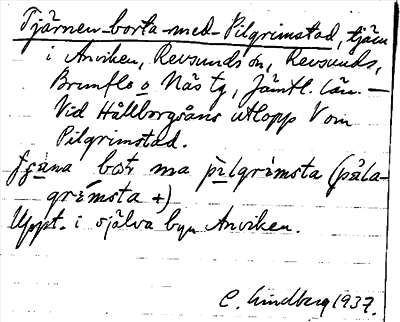 Tjärnen borta med Pilgrimstad, tjärn
i Anviken, Revsundsön, Revsunds,
Brunflo o Näs tg, Jämtl. län. —
Vid Hållborgsåns utlopp V om
Pilgrimstad.
bor ma pilgrimsta (påla-
grimsta +)
Uppt. i själva byn Anviken.
C. Lindberg 1937.